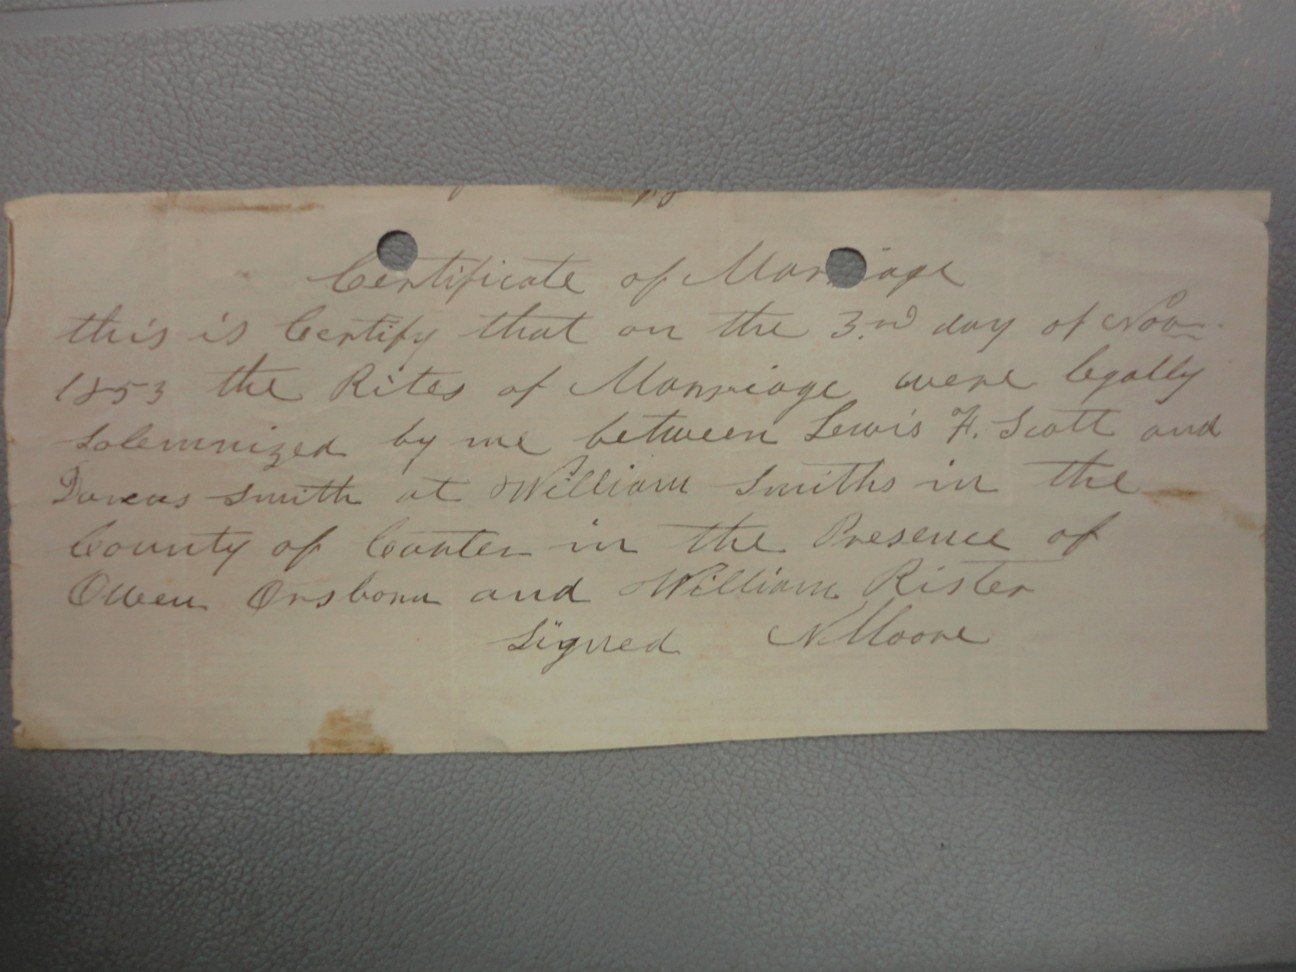 Certificate of Marriage
this is Certify that on the 3rd day of Nov.
1853 the Rites of Marriage were legally
Solemnized by me between Lewis F. Scott and
Dorcas Smith at William Smiths in the
County of Carter in the Presence of
Owen Orsborn and William Rister
Signed N Moore